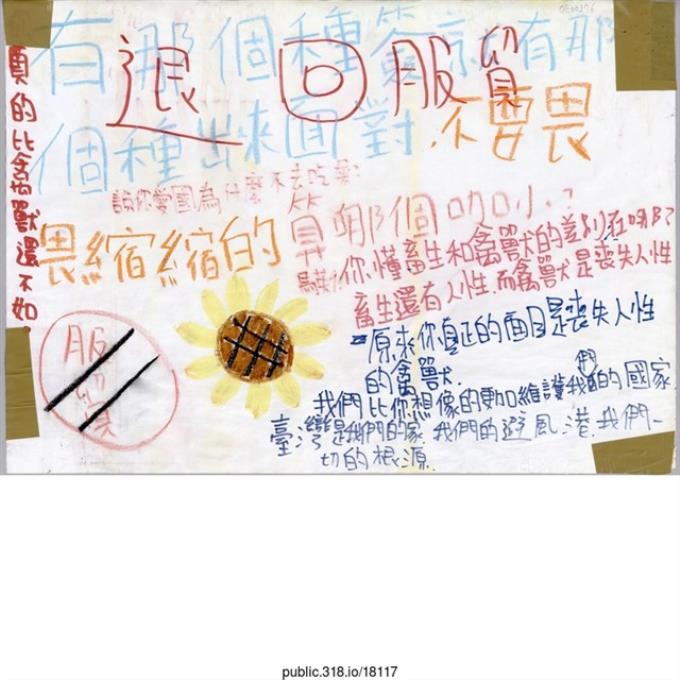 有那個種簽就有那
個種出來面對.不要畏
畏縮縮的
退回服貿
真的比禽獸還不如
說你愛國為什麼不去吃
那個叻叻.?
你懂畜生和禽獸的差別在哪?
畜生還有人性.而禽獸是喪失人性
原來你真正的面目是喪失人性
的禽獸.
我們比你想像的更加維護我們的國家
臺灣是我們的家.我們的避風港.我們一
切的根源.
服貿
public.318.io/18117